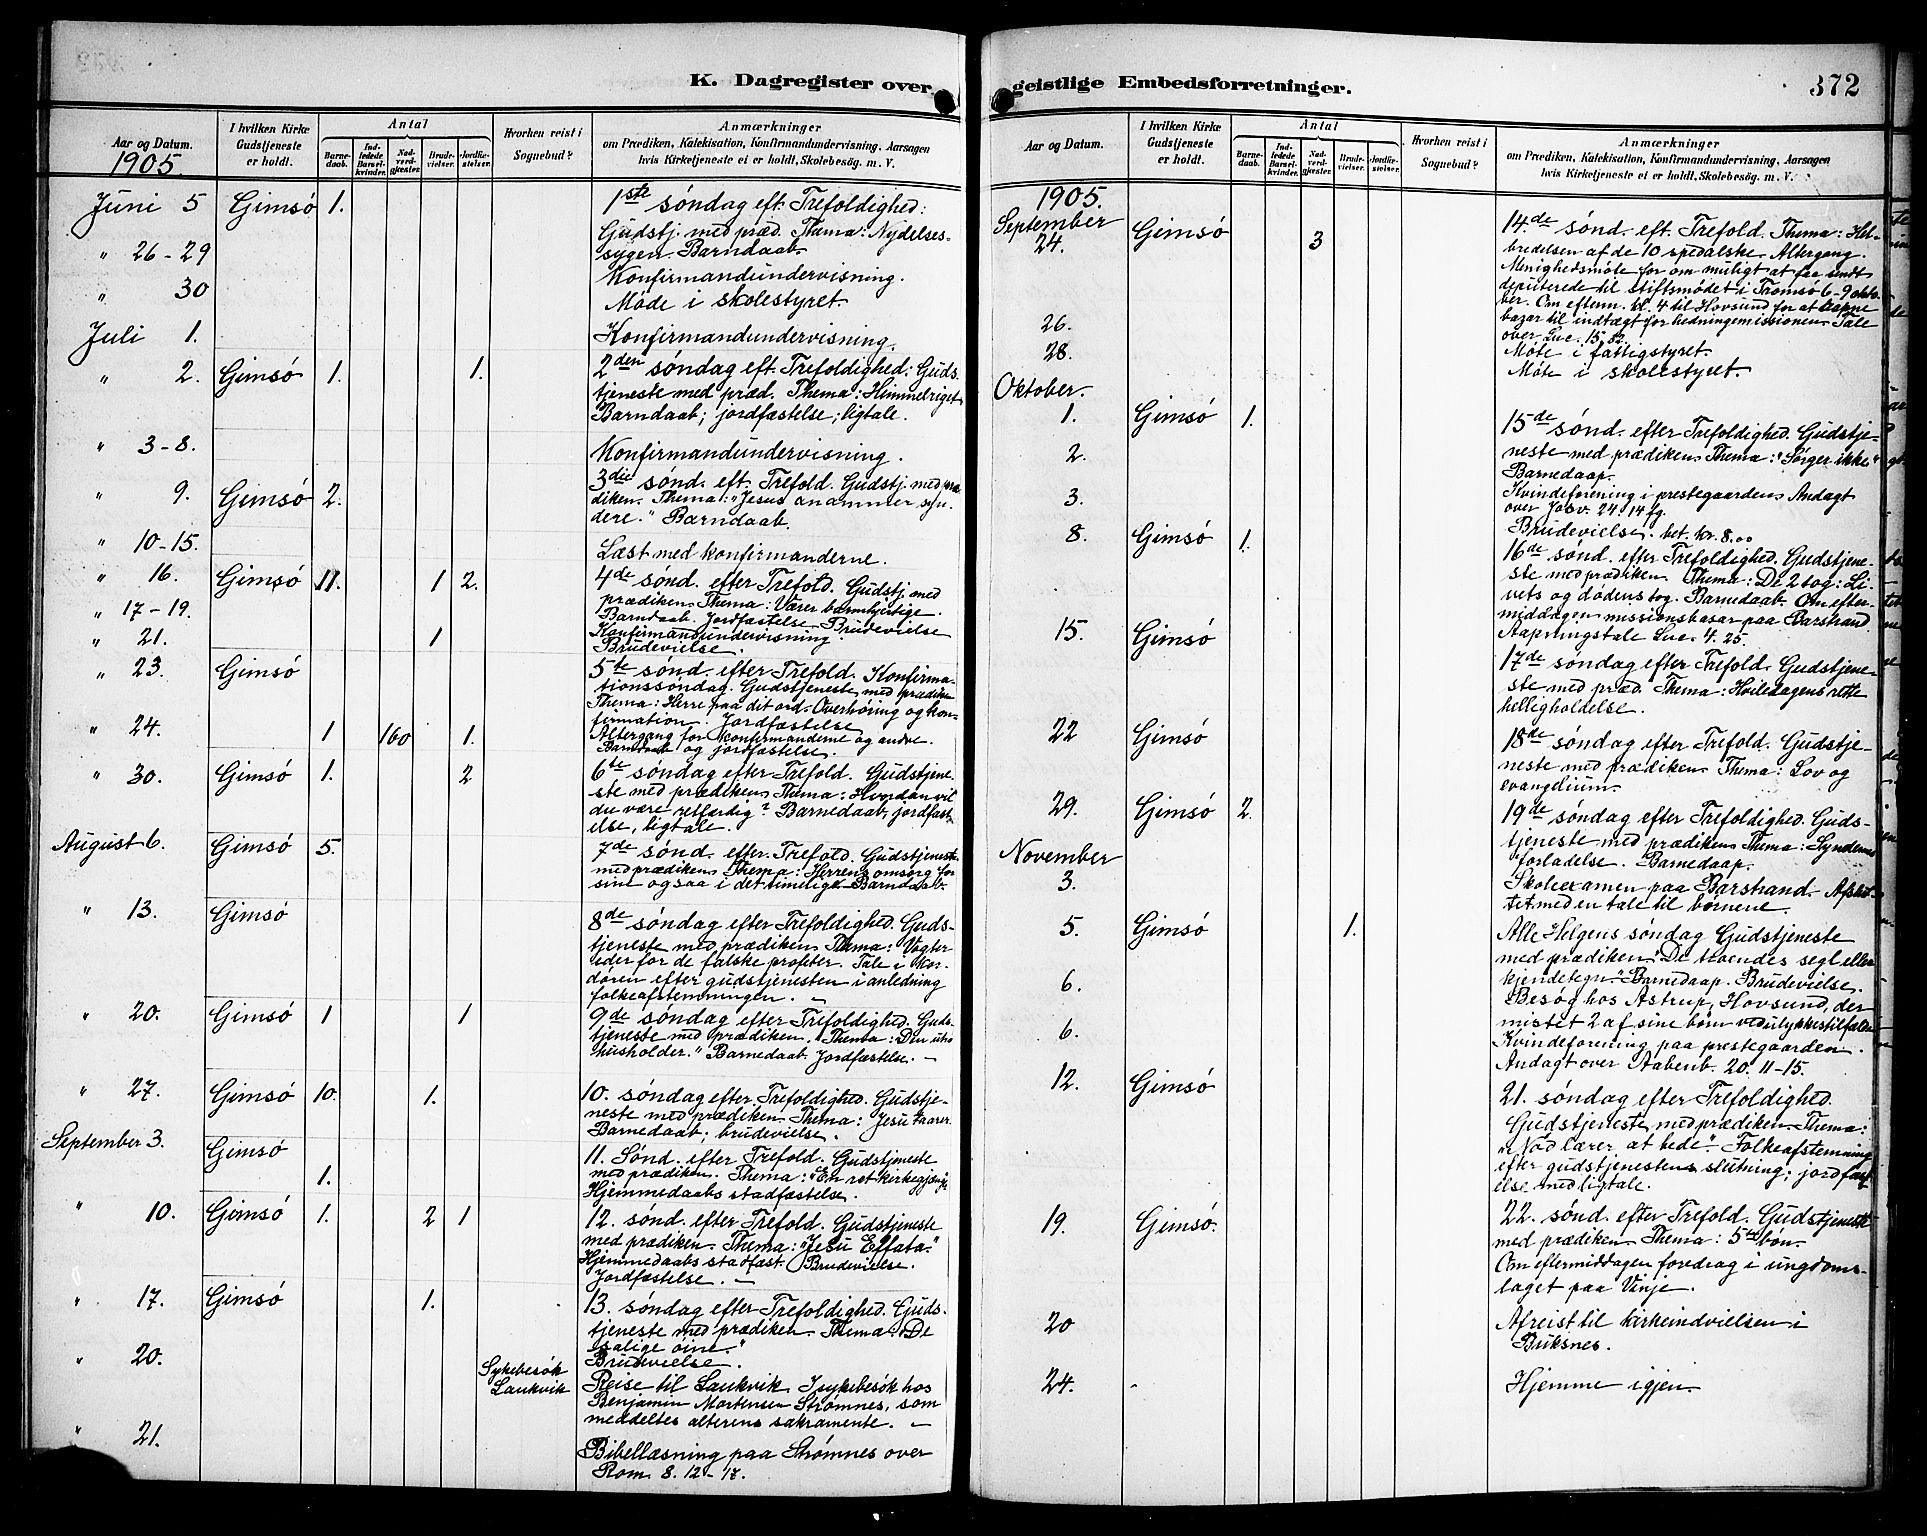 K. Dagregister over
Aar og Datum.
1905
I hvilken Kirke Gudstjeneste er holdt.
Antal
Barnedaab.
Indledede Barselkvinder.
Nadverdgjester.
Brudevielser.
Jordfæstelser.
Hvorhen reist i Sognebud?
Anmærkninger
om Prædiken, Katekisation, Konfirmandundervisning, Aarsagen
hvis Kirketjeneste ei er holdt, Skolebesög. m. V.
Juni 5 Gimsó 1. 1ste sóndag eft. Trefoldighed:
Gudstj. med præd. Thema: Nydelses-
sygen. Barndaab.
" 26-29 Konfirmandundervisning.
" 30 Móde i skolestyret
Juli 1. Konfirmandundervisning.
" 2. Gimsó 1. 1. 2den sóndag eft. Trefoldighed: Guds-
tjeneste med præd. Thema: Himmelriget
Barndaab; jordfæstelse; ligtale.
" 3-8. Konfirmandundervisning.
" 9. Gimsó 2. 3die sónd. eft. Trefold. Gudstj. med præ-
diken. Thema: "Jesus anammer syn-
dere." Barndaab.
" 10-15. Læst med konfirmanderne.
" 16. Gimsó 11. 1 2. 4de sónd. efter Trefold. Gudstj. med
prædiken. Thema: Værer barmhjertige.
Barndaab. Jordfæstelse Brudevielse
" 17-19. Konfirmandundervisning
" 21. 1 Brudevielse.
" 23. Gimsó 5te sónd. efter Trefold. Konfirma-
tionssóndag. Gudstjeneste med prædiken
Thema: Herre paa dit ord. Overhóring og kon-
firmation. Jordfæstelse
" 24. 1 160 1. Altergang for konfirmanderne og andre.
Barndaab og jordfæstelse.
" 30. Gimsó 1. 2 6te sóndag efter Trefold. Gudstjene-
ste med prædiken. Thema: Hvordan vil
du være retfærdig? Barnedaab, jordfæst-
else, ligtale.
August 6. Gimsó 5. 7de sónd. efter Trefold. Gudstjeneste
med prædiken. Thema: Herrens omsorg for
sine ogsaa i det timelige. Barndaab.
" 13. Gimsó 8de sóndag efter Trefoldighed. Guds-
tjeneste med prædiken. Thema: Vogter
eder for de falske profeter. Tale i kor-
dóren efter gudstjenesten i anledning
folkeafstemningen.
" 20. Gimsó 1 1 9de sóndag efter Trefoldighed. Guds-
tjeneste med prædiken. Thema: Den utro
husholder." Barnedaab. Jordfæstelse.
" 27. Gimsó 10. 1. 10. sóndag efter Trefoldighed. Gudstje-
neste med prædiken. Thema: Jesu taarer.
Barnedaab; brudevielse.
September 3. Gimsó 1. 11. Sónd. efter Trefold. Gudstjeneste
med prædiken. Thema: "En ret kirkegjænger
Hjemmedaabs stadfæstelse.
" 10. Gimsó 1. 2 1 12. sónd. efter Trefold. Gudstjeneste
med prædiken. Thema: "Jesu Effata."
Hjemmedaabs stadfæst. Brudevielse.
Jordfæstelse.
" 17. Gimsó 1. 13. sóndag efter Trefoldighed. Guds-
tjeneste med prædiken. Thema: De
salige óine."
Brudevielse.
" 20. Sykebesók Laukvik Reise til Laukvik. I sykebesók hos
Benjamin Mortensen Strómnes, som
meddeltes alterens sakramente.
" 21. Bibellæsning paa Strómnes over
Rom. 8. 12-17.
geistlige Embedsforretninger.
372
Aar og Datum.
I hvilken Kirke Gudstjeneste er holdt.
Antal
Barnedaab.
Indledede Barselkvinder.
Nadverdgjester.
Brudevielser.
Jordfæstelser.
Hvorhen reist i Sognebud?
Anmærkninger
om Prædiken, Katekisation, Konfirmandundervisning, Aarsagen
hvis Kirketjeneste ei er holdt, Skolebesög. m. V.
1905.
September
24. Gimsó 3 14de sónd. eft. Trefold. Thema: Hel-
bredelsen af de 10 spedalske. Altergang.
Menighedsmóte for om muligt at faa sendt
deputerede til stiftsmódet i Tromsó 6-9 okto-
ber. Om efterm. kl. 4 til Hovsund for at aapne
bazar til indtægt for hedningemissionen. Tale
over Luc. 15,
26. Móte i fattigstyret.
28. Móte i skolestyret
Oktober.
1. Gimsó 1. 15de sónd. efter Trefoldighed. Gudstje-
neste med prædiken. Thema: "Sórger ikke"
Barnedaap.
2. Kvindeforening i prestegaarden. Andagt
over Josv. 24. 14 fg.
3. Brudevielse. bet. kr. 8.00
8. Gimsó 1. 16de sónd. efter Trefoldighed. Gudstjene-
ste med prædiken. Thema: De 2 tog: Li-
vets og dódens tog. Barnedaab. Om efter-
middagen missionsbasar paa Barstrand
Aapningstale Luc. 4. 25.
15. Gimsó 17de sóndag efter Trefold. Gudstjene-
ste med præd. Thema: Hviledagens rette
helligholdelse.
22 Gimsó 18de sóndag efter Trefold. Gudstje-
neste med prædiken. Thema: Lov og
evangelium.
29. Gimsó 2. 19de sóndag efter Trefoldighed. Guds-
tjeneste med prædiken. Thema: Syndernes
forladelse. Barnedaap.
November
3. Skoleexamen paa Barstrand. Afslut-
tet med en tale til bórnene.
5. Gimsó 1. Alle Helgens sóndag Gudstjeneste
med prædiken: "De troendes segl eller
kjendetegn". Barnedaap. Brudevielse.
6. Besóg hos Astrup, Hovsund, der
mistet 2 af sine bórn ved ulykkestilfælde
6. Kvindeforening paa prestegaarden.
Andagt over Aabenb. 20. 11-15.
12. Gimsó 21. sóndag efter Trefoldighed.
Gudstjeneste med prædiken. Thema:
"Nód lærer at bede". Folkeafstemning
efter gudstjenestens slutning; jordfæst-
else med ligtale.
19. Gimsó. 22. sónd. efter Trefold. Gudstjeneste
med prædiken. Thema: 5te bón.
Om eftermiddagen foredrag i ungdoms-
laget paa Vinje.
20 Afreist til kirkeindvielsen i
Buksnes.
24. Hjemme igjen.